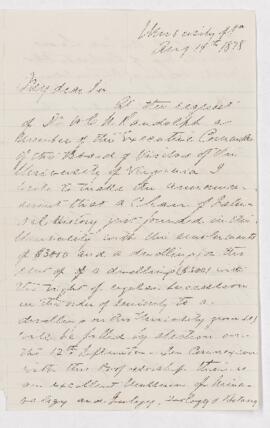 University of Va
Aug 19th 1878
My dear Sir
At the request
of Dr W C N Randolph a
Member of the Executive Committee
of the Board of Visitors of the
University of Virginia I
wrote to make the announce-
ment that a Chair of Natu-
ral History just founded in this
University with the emoluments
of $3000 and a dwelling or the
rent of a dwelling ($300) with
the right of regular succession
in the order of seniority to a
dwelling on the University grounds
will be filled by election on
the 12th September. In Connexion
with this Professorship there is
an excellent Museum of Minera-
logy and Geology, Zoology & Botany